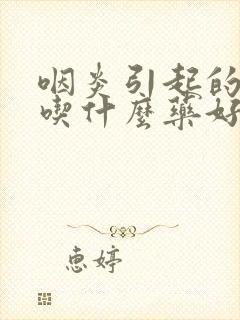 咽炎引起的
喫什麼藥好
惠婷